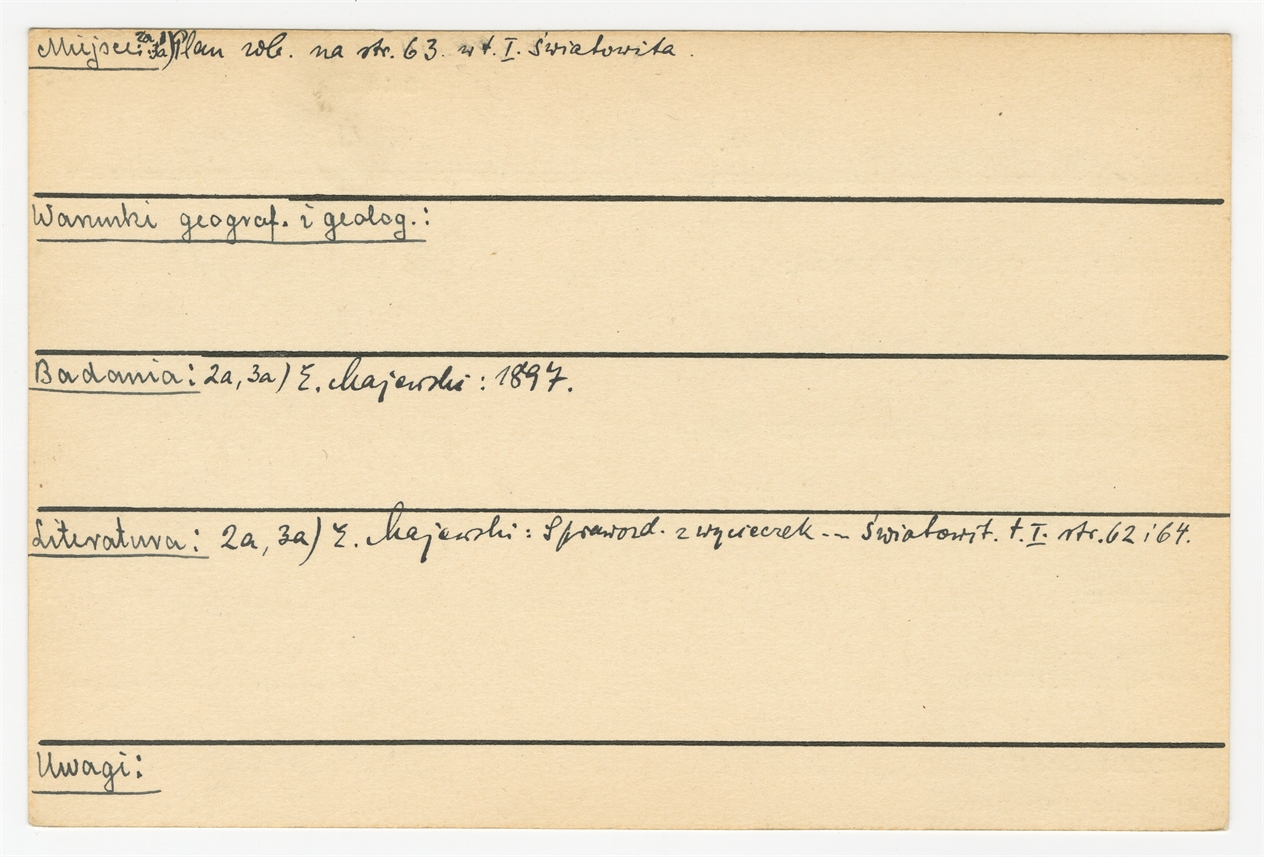 Miejsce: 2a, 3a) Plan zob. na str. 63. w t. I. Światowita.
Warunki geograf. i geolog.:
Badania: 2a, 3a) E. Majewski: 1897.
Literatura: 2a, 3a) E. Majewski: Sprawozd. z wycieczek -- Światowit. t. I. str. 62 i 64.
Uwagi: